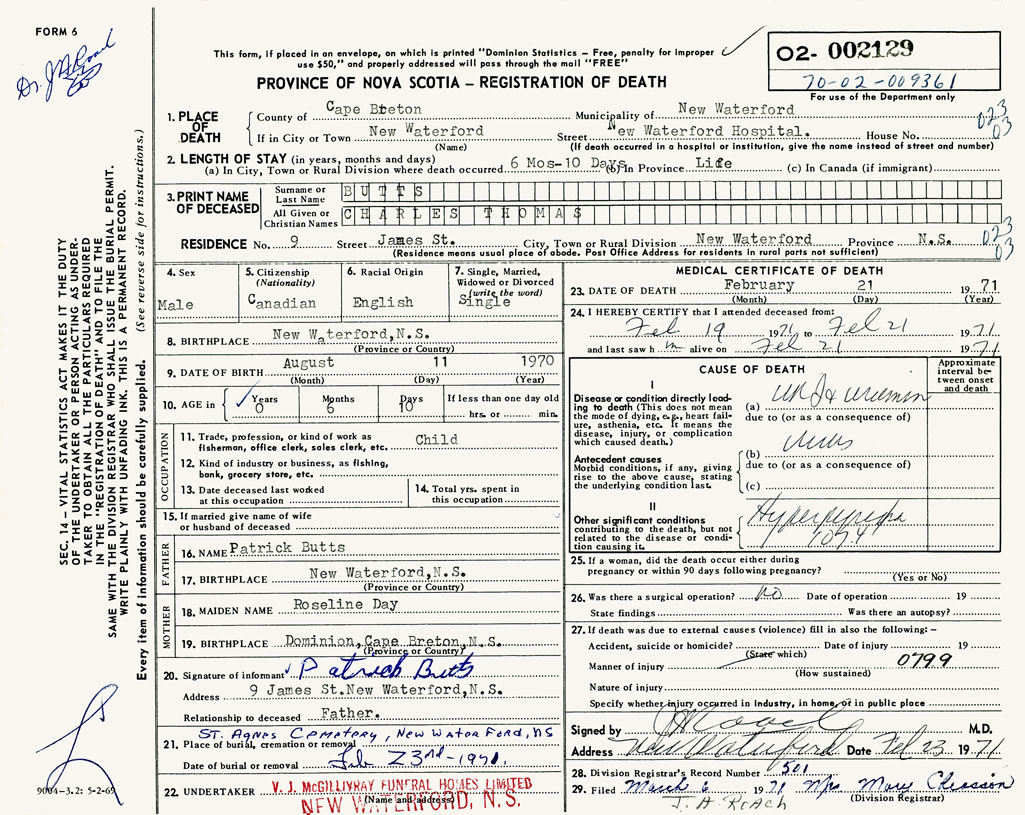 FORM 6
Dr. J A Roach
This form, if placed in an envelope, on which is printed "Dominion Statistics – Free, penalty for improper
use $50," and properly addressed will pass through the mail "FREE"
PROVINCE OF NOVA SCOTIA – REGISTRATION OF DEATH
02- 002129
70-02-009361
For use of the Department only
1. PLACE OF DEATH
County of Cape Breton Municipality of New Waterford 023
If in City or Town New Waterford Street New Waterford Hospital. House No. 03
(Name) (If death occurred in a hospital or institution, give the name instead of street and number)
2. LENGTH OF STAY (in years, months and days)
(a) In City, Town or Rural Division where death occurred 6 Mos-10 Days (b) In Province Life (c) In Canada (if immigrant)
3. PRINT NAME OF DECEASED
Surname or Last Name BUTTS
All Given or Christian Names CHARLES THOMAS
RESIDENCE No. 9 Street James St. City, Town or Rural Division New Waterford Province N.S. 023 03
(Residence means usual place of abode. Post Office Address for residents in rural parts not sufficient)
4. Sex
Male
5. Citizenship (Nationality)
Canadian
6. Racial Origin
English
7. Single, Married, Widowed or Divorced (write the word)
Single
8. BIRTHPLACE New Waterford,N.S.
(Province or Country)
9. DATE OF BIRTH August 11 1970
(Month) (Day) (Year)
10. AGE in Years 0 Months 6 Days 10 If less than one day old hrs. or min.
OCCUPATION
11. Trade, profession, or kind of work as fisherman, office clerk, sales clerk, etc. Child
12. Kind of industry or business, as fishing, bank, grocery store, etc.
13. Date deceased last worked at this occupation
14. Total yrs. spent in this occupation
15. If married give name of wife or husband of deceased
FATHER
16. NAME Patrick Butts
17. BIRTHPLACE New Waterford,N.S.
(Province or Country)
MOTHER
18. MAIDEN NAME Roseline Day
19. BIRTHPLACE Dominion,Cape Breton,N.S.
(Province or Country)
20. Signature of informant Patrick Butts
Address 9 James St.New Waterford,N.S.
Relationship to deceased Father.
ST. Agnes Cemetery, New Waterford, NS
21. Place of burial, cremation or removal
Date of burial or removal Feb 23rd-1971.
22. UNDERTAKER V. J. McGILLIVRAY FUNERAL HOMES LIMITED
(Name and address)
NEW WATERFORD, N. S.
MEDICAL CERTIFICATE OF DEATH
23. DATE OF DEATH February 21 1971
(Month) (Day) (Year)
24. I HEREBY CERTIFY that I attended deceased from:
Feb 19 1971 to Feb 21 1971
and last saw h m alive on Feb 21 1971
CAUSE OF DEATH
Approximate interval between onset and death
I
Disease or condition directly leading to death (This does not mean the mode of dying, e.g., heart failure, asthenia, etc. It means the disease, injury, or complication which caused death.)
(a)
due to (or as a consequence of)
Antecedent causes
Morbid conditions, if any, giving rise to the above cause, stating the underlying condition last.
(b) Virus
due to (or as a consequence of)
(c)
II
Other significant conditions contributing to the death, but not related to the disease or condition causing it.
Hyperpyrexia
107.4
25. If a woman, did the death occur either during pregnancy or within 90 days following pregnancy?
(Yes or No)
26. Was there a surgical operation? no Date of operation 19
State findings Was there an autopsy?
27. If death was due to external causes (violence) fill in also the following: –
Accident, suicide or homicide? Date of injury 19
(State which) 0799
Manner of injury
(How sustained)
Nature of injury
Specify whether injury occurred in industry, in home, or in public place
Signed by J A Roach M.D.
Address New Waterford Date Feb 23 1971
28. Division Registrar's Record Number 501
29. Filed March 6 1971 Mrs Mary Chiasson
J. A ROACH (Division Registrar)
SEC. 14 – VITAL STATISTICS ACT MAKES IT THE DUTY
OF THE UNDERTAKER OR PERSON ACTING AS UNDER-
TAKER TO OBTAIN ALL THE PARTICULARS REQUIRED
IN THE "REGISTRATION OF DEATH" AND TO FILE THE
SAME WITH THE DIVISION REGISTRAR WHO SHALL ISSUE THE BURIAL PERMIT.
WRITE PLAINLY WITH UNFADING INK. THIS IS A PERMANENT RECORD.
Every item of information should be carefully supplied. (See reverse side for instructions.)
9004-3.2: 5-2-69